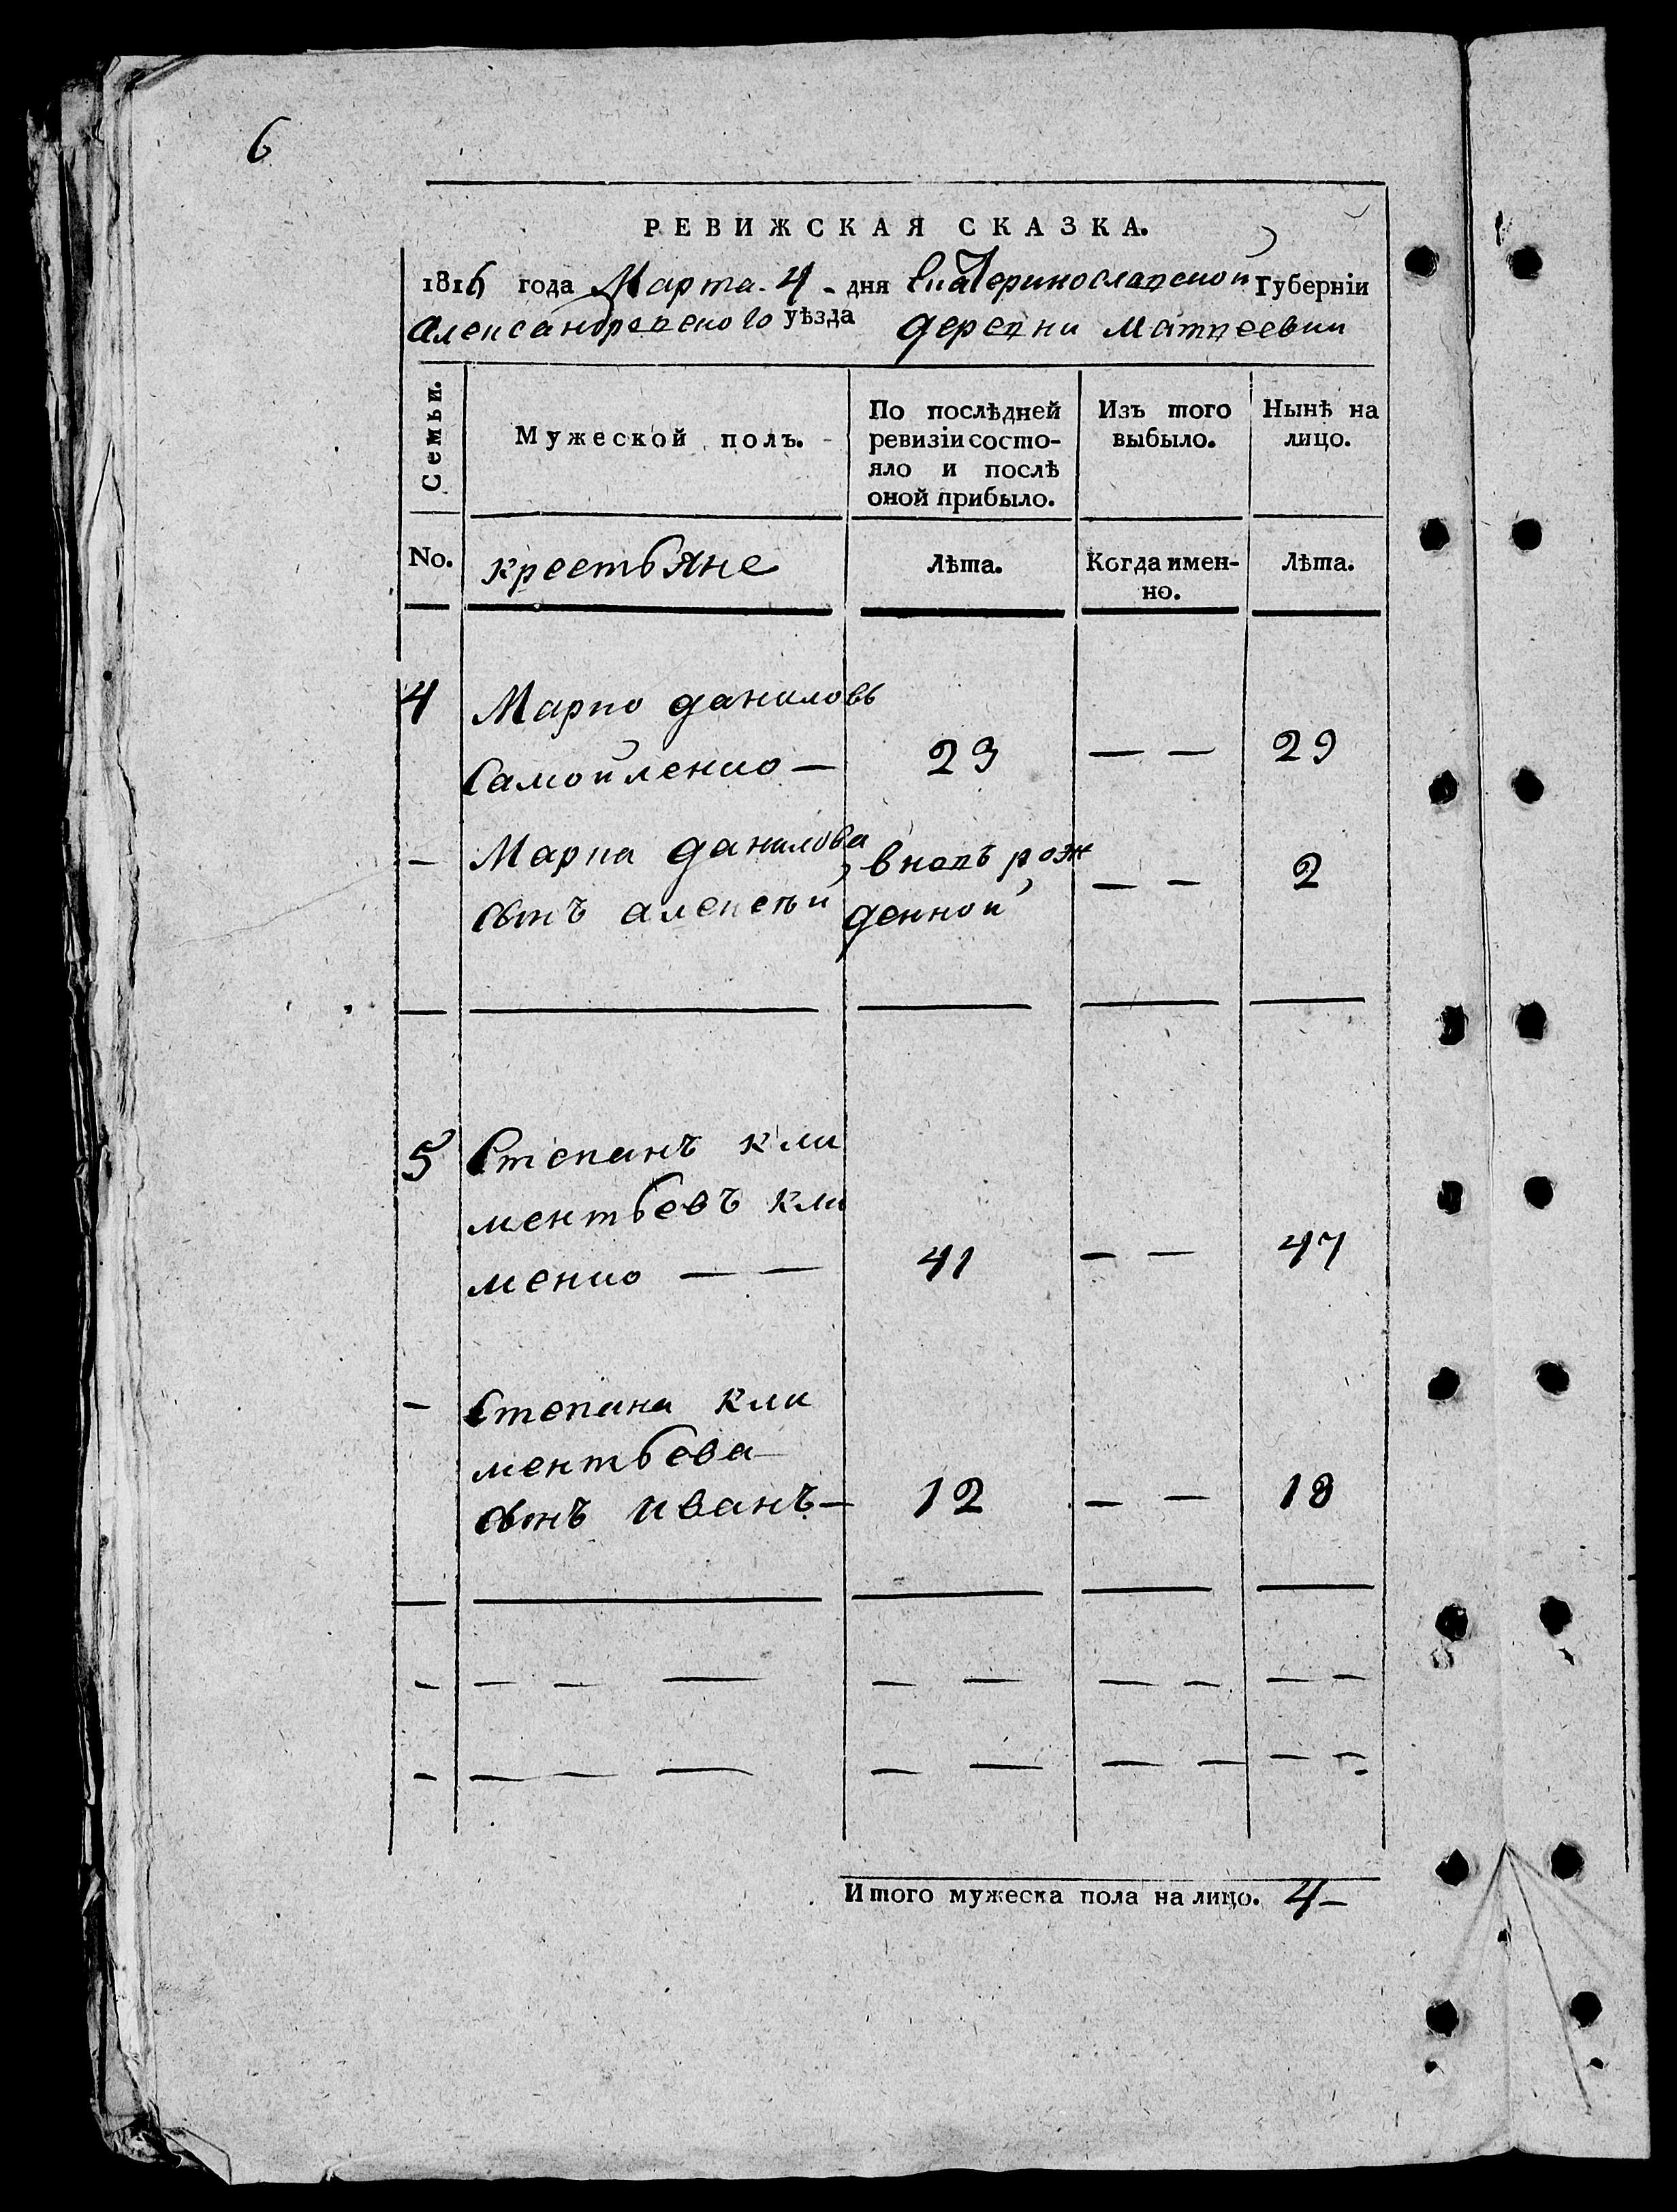 6
РЕВИЖСКАЯ СКАЗКА.
1816 года Марта 4 дня Екатеринославской Губернiи
Александровского уѣзда деревни Матвеевки
Семьи.
Мужеской полъ.
По послѣдней
ревизiи состо-
яло и послѣ
оной прибыло.
Изъ того
выбыло.
Нынѣ на
лицо.
No.
крестьяне
Лѣта.
Когда имен-
но.
Лѣта.
4 Марко даниловъ
Самойленко — 23 — — 29
— Марка данилова вновь рож
сынъ алексѣй денной — — 2
5 Степанъ кли
ментьевъ кли
менко — — 41 — — 47
— Степана кли
ментьева
сынъ иванъ — 12 — — 18
Итого мужеска пола на лицо. 4 —